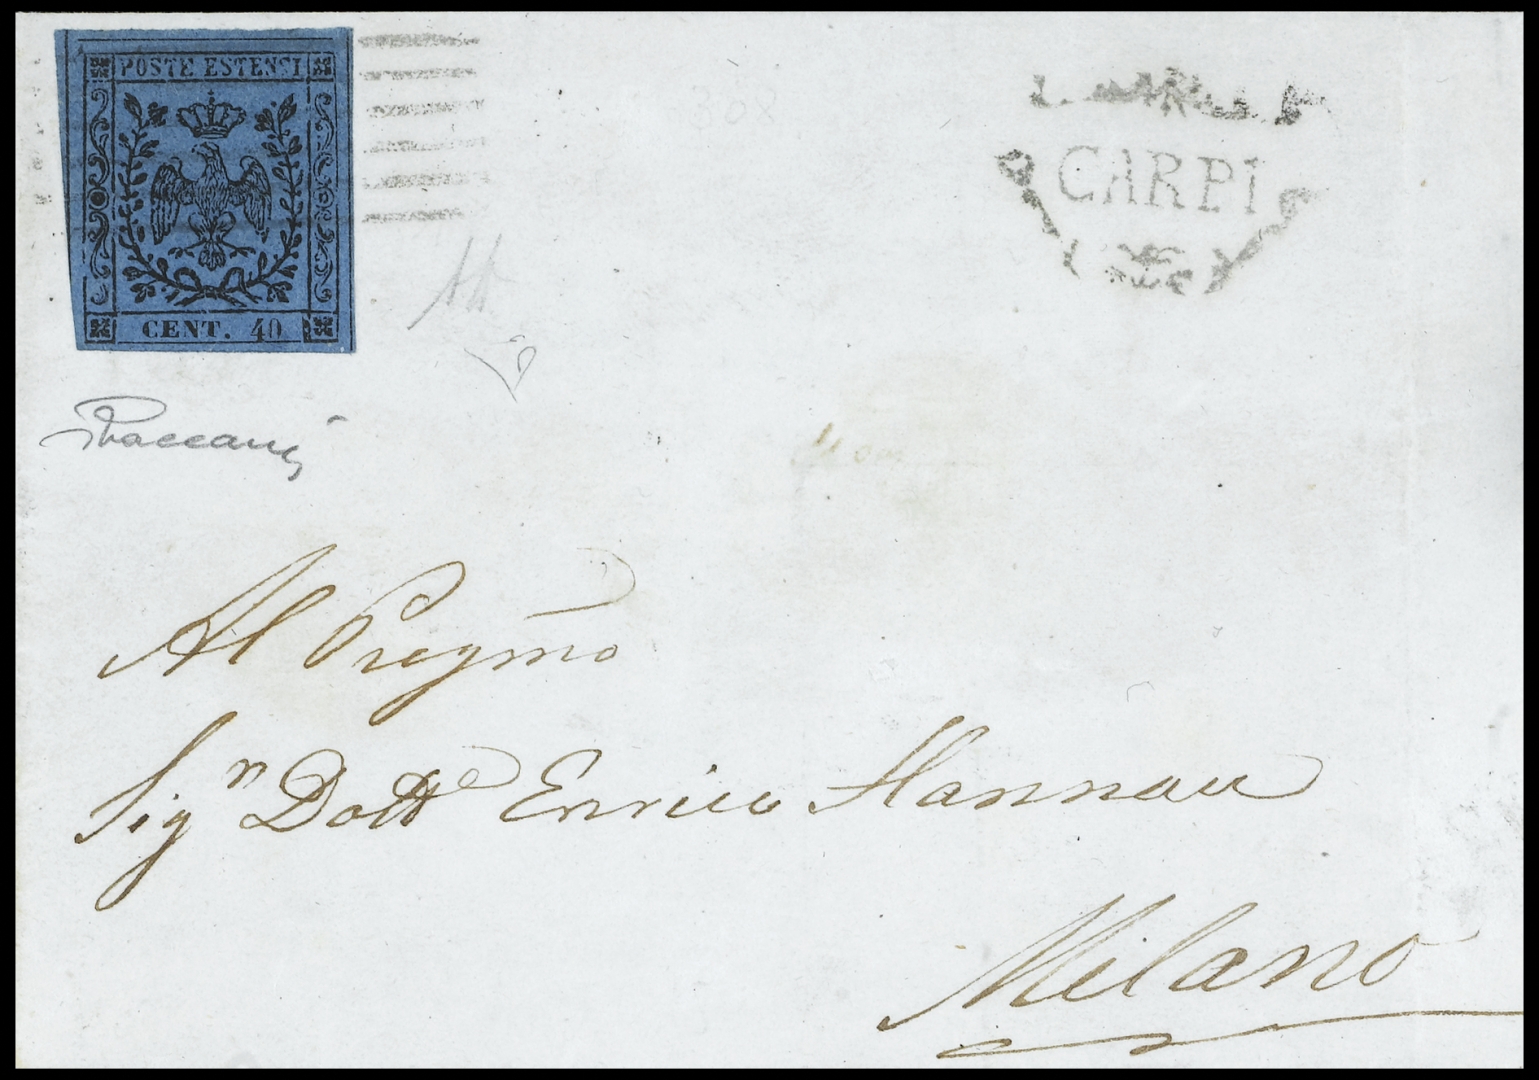 POSTE ESTENSI
CENT. 40
308
CARPI
Al Pregmo
Sigr Dotte Enrico Hannau
Milano